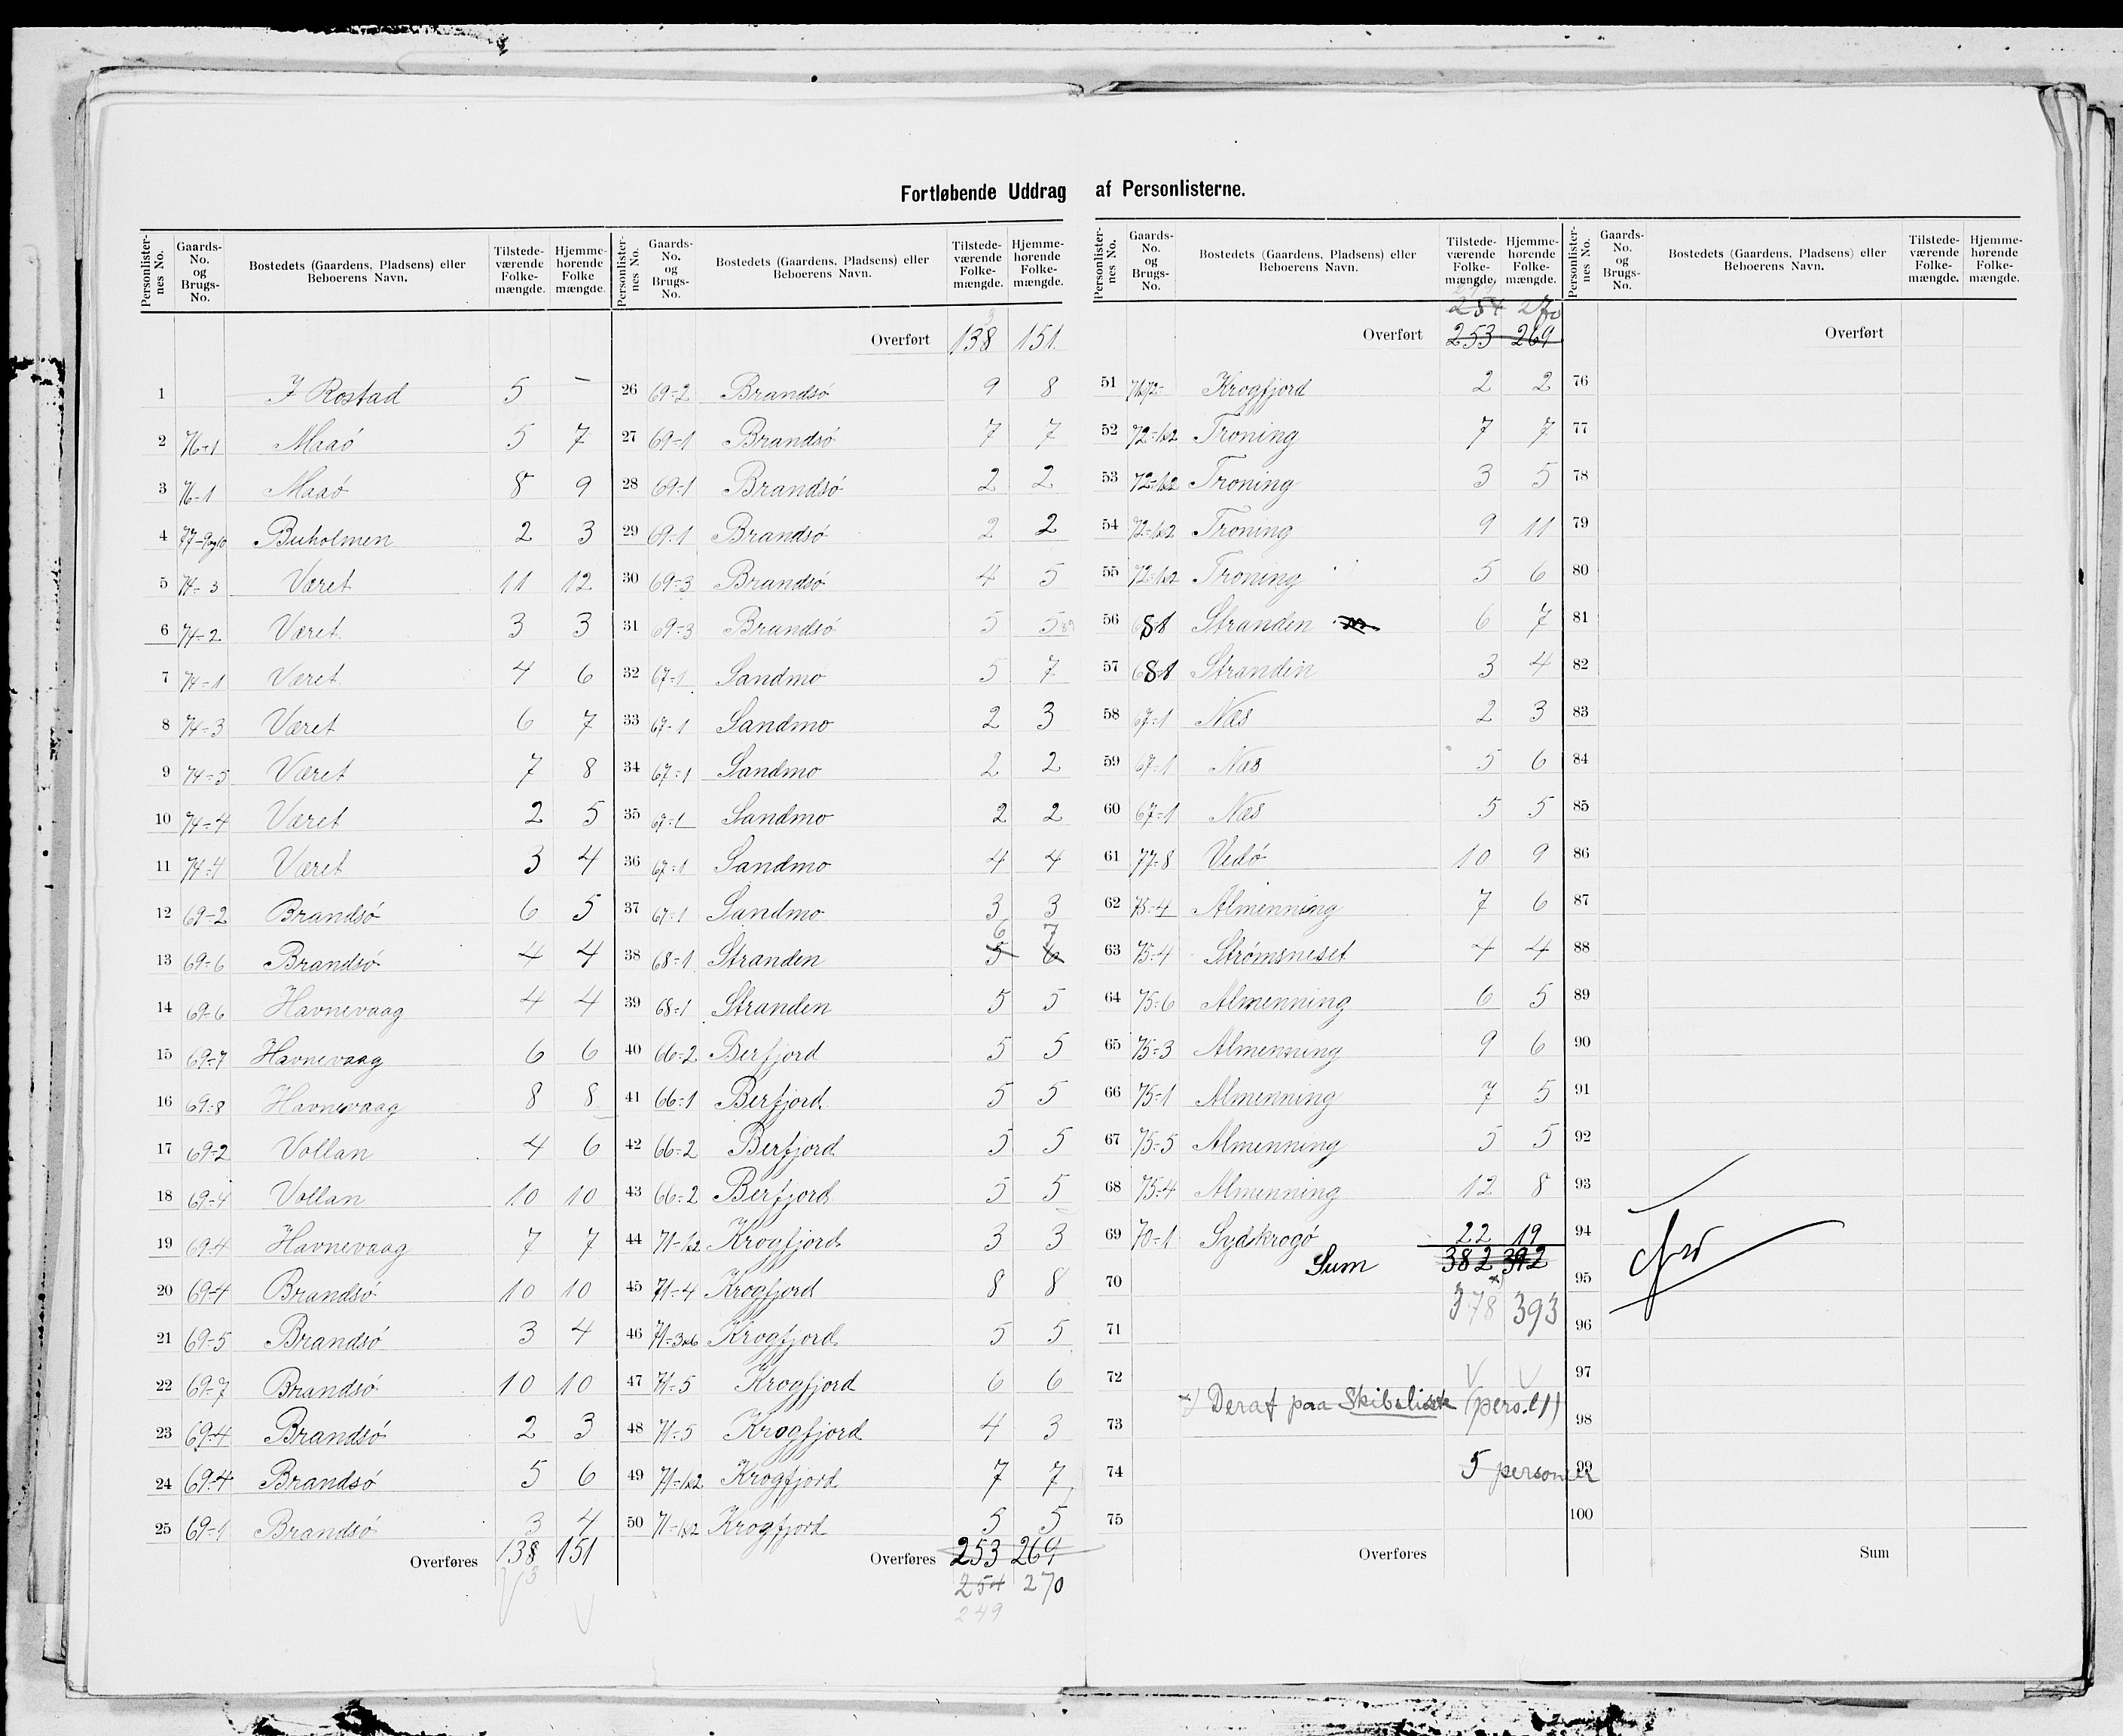 Fortløbende Uddrag af Personlisterne.
Personlister-nes No. Gaards-No. og Brugs-No. Bostedets (Gaardens, Pladsens) eller Beboerens Navn. Tilstede-værende Folke-mængde. Hjemme-hørende Folke mængde.
1 J Rostad 5 –
2 76-1 Maaö 5 7
3 76-1 Maaö 8 9
4 77-9og10 Buholmen 2 3
5 74-3 Været 11 12
6 74-2 Været 3 3
7 74-1 Været 4 6
8 74-3 Været 6 7
9 74-5 Været 7 8
10 74-4 Været 2 5
11 74-4 Været 3 4
12 69-2 Brandsö 6 5
13 69-6 Brandsö 4 4
14 69-6 Havnevaag 4 4
15 69-7 Havnevaag 6 6
16 69-8 Havnevaag 8 8
17 69-2 Vollan 4 6
18 69-4 Vollan 10 10
19 69-4 Havnevaag 7 7
20 69-4 Brandsö 10 10
21 69-5 Brandsö 3 4
22 69-7 Brandsö 10 10
23 69-4 Brandsö 2 3
24 69-4 Brandsö 5 6
25 69-1 Brandsö 3 4
Overføres 138 151
3
Personlister-nes No. Gaards-No. og Brugs-No. Bostedets (Gaardens, Pladsens) eller Beboerens Navn. Tilstede-værende Folke-mængde. Hjemme-hørende Folke-mængde.
3
Overført 138 151
26 69-2 Brandsö 9 8
27 69-1 Brandsö 7 7
28 69-1 Brandsö 2 2
29 69-1 Brandsö 2 2
30 69-3 Brandsö 4 5
31 69-3 Brandsö 5 5
32 67-1 Sandmo 5 7
33 67-1 Sandmo 2 3
34 67-1 Sandmo 2 2
35 67-1 Sandmo 2 2
36 67-1 Sandmo 4 4
37 67-1 Sandmo 3 3
6 7
38 68-1 Stranden 5 6
39 68-1 Stranden 5 5
40 66-2 Berfjord 5 5
41 66-1 Berfjord 5 5
42 66-2 Berfjord 5 5
43 66-2 Berfjord 5 5
44 71-1&2 Krogfjord 3 3
45 71-4 Krogfjord 8 8
46 71-3&6 Krogfjord 5 5
47 71-5 Krogfjord 6 6
48 71-5 Krogfjord 4 3
49 71-1&2 Krogfjord 7 7
50 71-1&2 Krogfjord 5 5
Overføres 253 269
254 270
249
Personlister-nes No. Gaards-No. og Brugs-No. Bostedets (Gaardens, Pladsens) eller Beboerens Navn. Tilstede-værende Folke-mængde. Hjemme-hørende Folke-mængde.
254 270
Overført 253 269
51 Krogfjord 2 2
52 72-1&2 Troning 7 7
53 72-1&2 Troning 3 5
54 72-1&2 Troning 9 11
55 72-1&2 Troning 5 6
56 68-1 Stranden 6 7
57 68-1 Stranden 3 4
58 67-1 Næs 2 3
59 67-1 Næs 5 6
60 67-1 Næs 5 5
61 77-8 Vedö 10 9
62 75-4 Almenning 7 6
63 75-4 Strømsneset 4 4
64 75-6 Almenning 6 5
65 75-3 Almenning 9 6
66 75-1 Almenning 7 5
67 75-5 Almenning 5 5
68 75-4 Almenning 12 8
69 70-1 Sydkrogö 22 19
Sum 382 392
70 x) 378 393
71
72
x) Deraf paa Skibsliste (pers.l 1)
73
74 5 personer
75
Overføres
Personlister-nes No. Gaards-No. og Brugs-No. Bostedets (Gaardens, Pladsens) eller Beboerens Navn. Tilstede-værende Folke-mængde. Hjemme-hørende Folke-mængde.
Overført
76
77
78
79
80
81
82
83
84
85
86
87
88
89
90
91
92
93
94
95
96
97
98
99
100
Sum